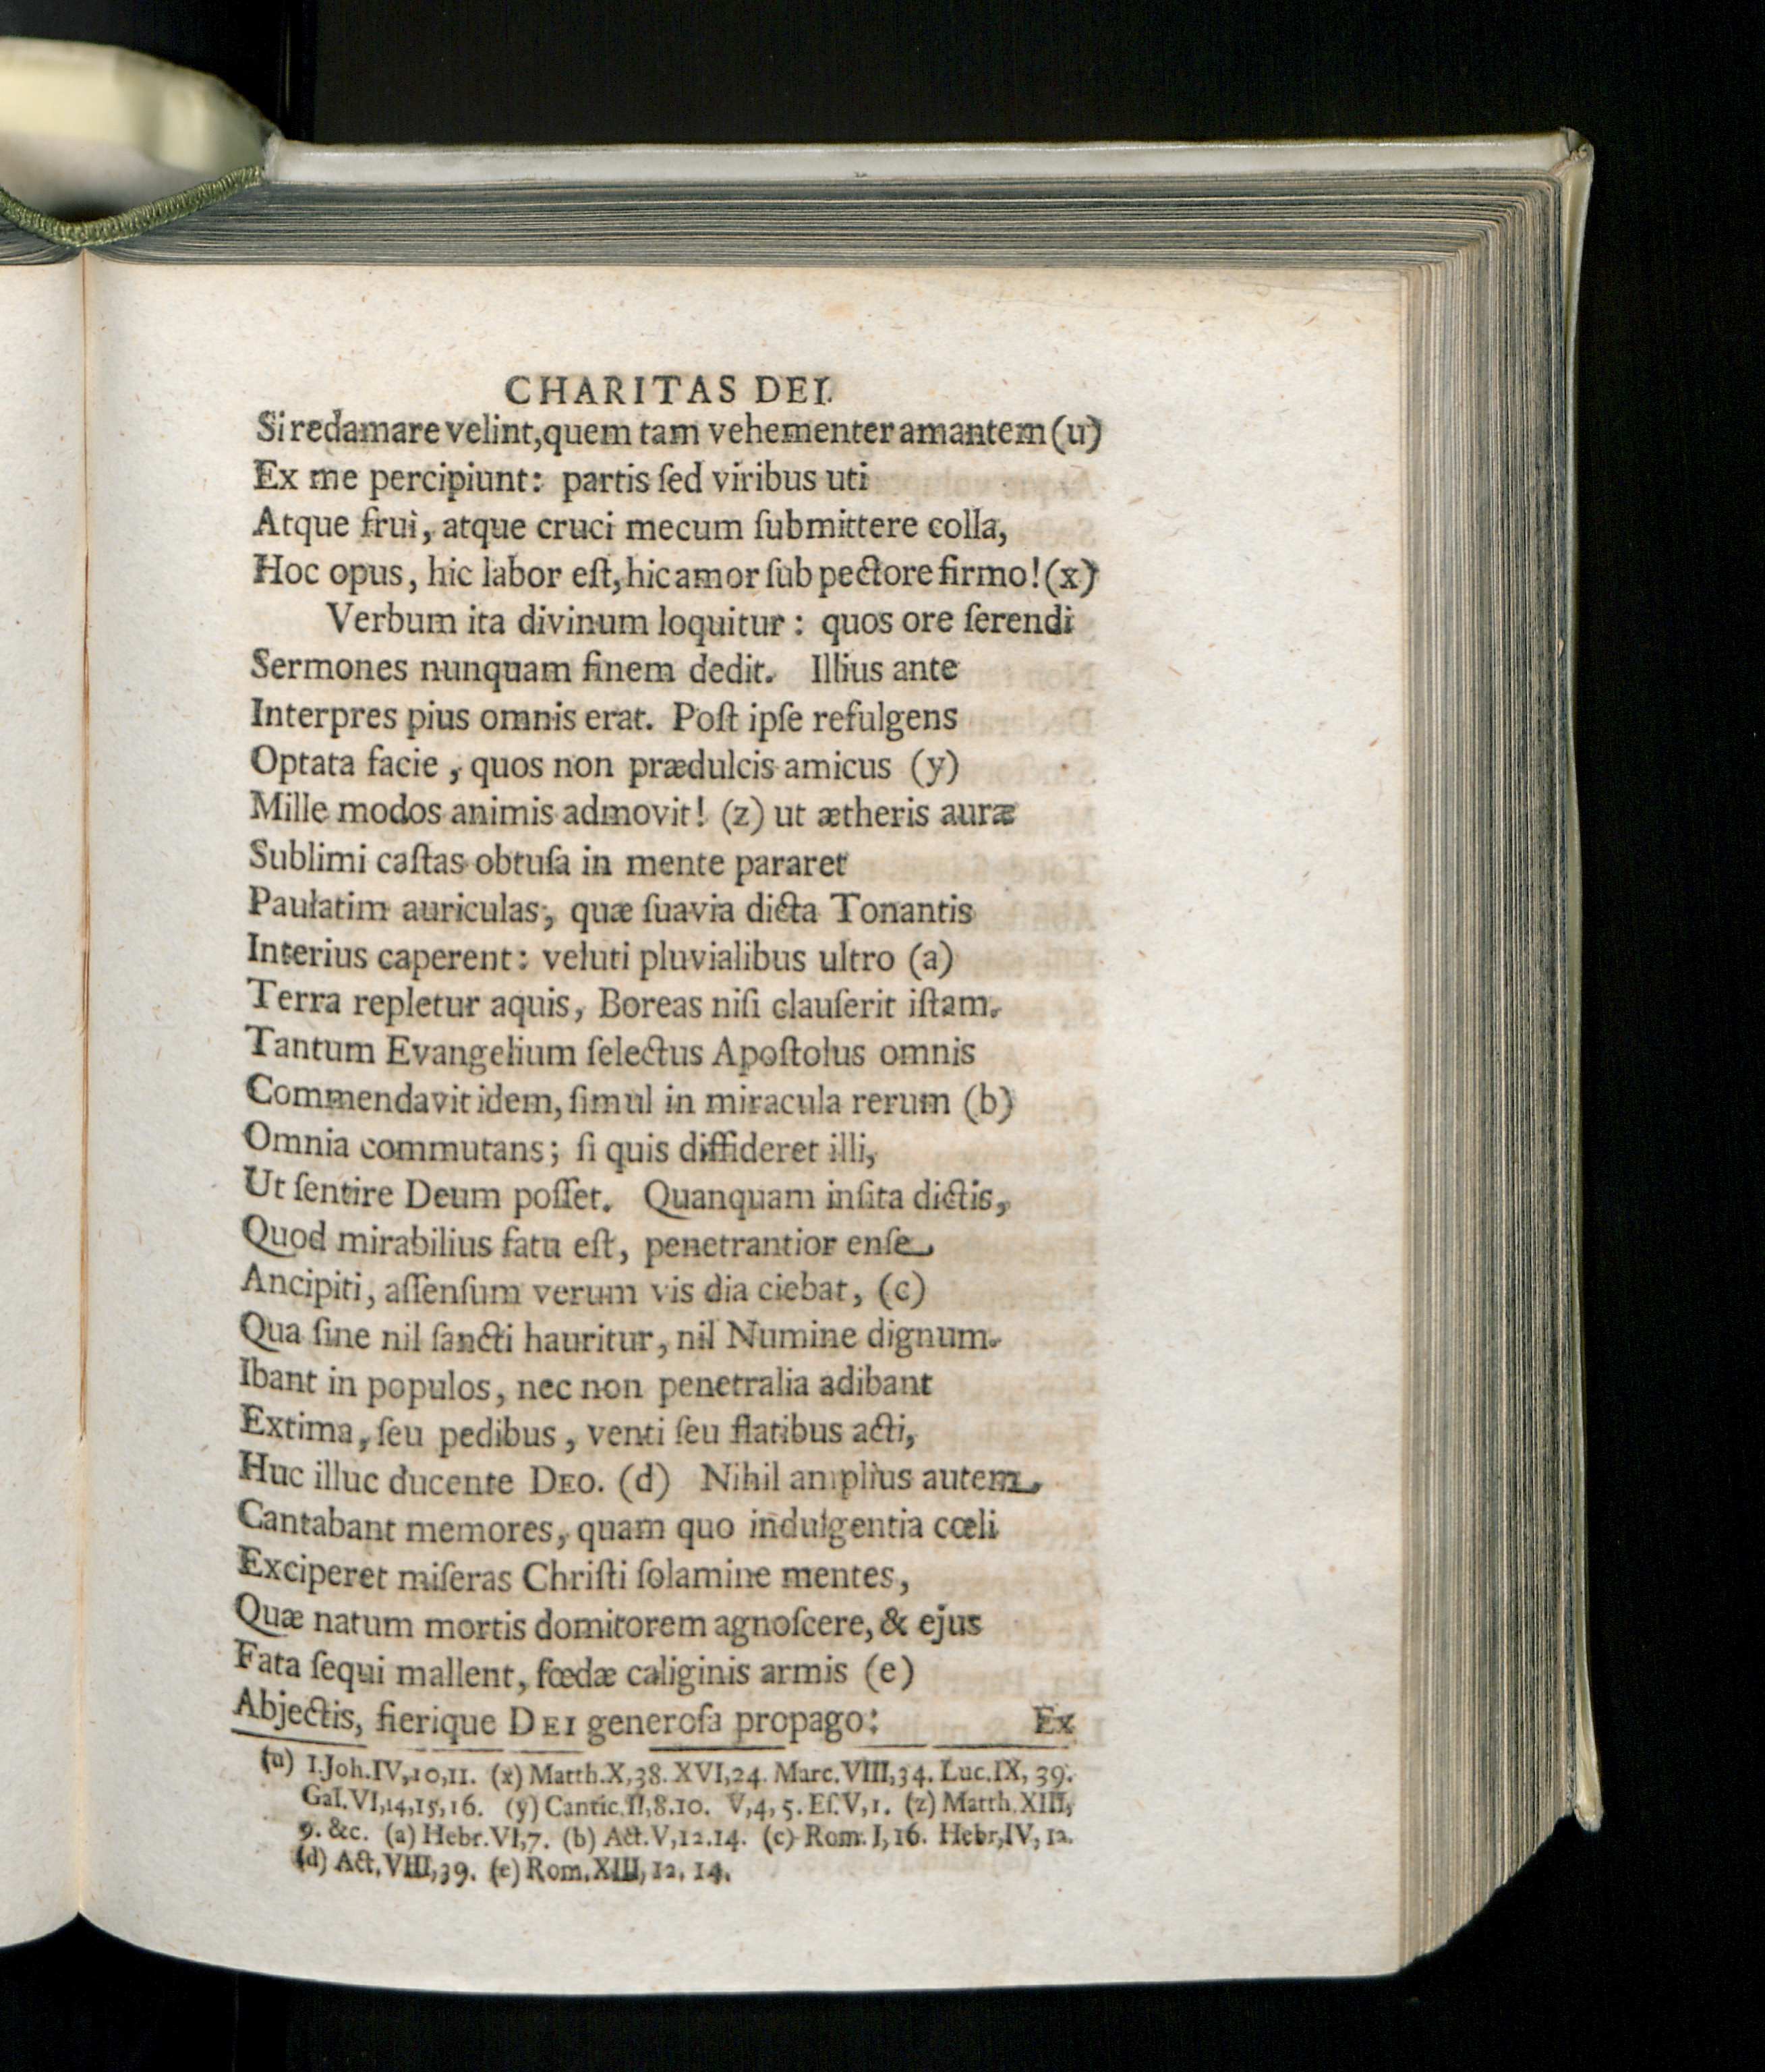 CHARITAS DEI.
Si redamare velint, quem tam vehementer amantem (u)
Ex me percipiunt: partis ſed viribus uti
Atque frui, atque cruci mecum ſubmittere colla,
Hoc opus, hic labor eſt, hic amor ſub pectore firmo! (x)
Verbum ita divinum loquitur: quos ore ſerendi
Sermones nunquam finem dedit. Illius ante
Interpres pius omnis erat. Poſt ipſe refulgens
Optata facie, quos non prædulcis amicus (y)
Mille modos animis admovit! (z) ut ætheris auræ
Sublimi caſtas obtuſa in mente pararet
Paulatim auriculas, quæ ſuavia dicta Tonantis
Interius caperent: veluti pluvialibus ultro (a)
Terra repletur aquis, Boreas niſi clauſerit iſtam.
Tantum Evangelium ſelectus Apoſtolus omnis
Commendavit idem, ſimul in miracula rerum (b)
Omnia commutans; ſi quis diffideret illi,
Ut ſentire Deum poſſet. Quanquam inſita dictis,
Quod mirabilius fatu eſt, penetrantior enſe,
Ancipiti, aſſenſum verum vis dia ciebat, (c)
Qua ſine nil ſancti hauritur, nil Numine dignum.
Ibant in populos, nec non penetralia adibant
Extima, ſeu pedibus, venti ſeu flatibus acti,
Huc illuc ducente DEO. (d) Nihil amplius autem,
Cantabant memores, quam quo indulgentia cœli
Exciperet miſeras Chriſti ſolamine mentes,
Quæ natum mortis domitorem agnoſcere, & ejus
Fata ſequi mallent, fœdæ caliginis armis (e)
Abjectis, fierique DEI generoſa propago: Ex
(u) I.Joh.IV,10,11. (x) Matth.X,38. XVI,24. Marc.VIII,34. Luc.IX, 39.
Gal.VI,14,15,16. (y) Cantic.II,8.10. V,4,5. Eſ.V,1. (z) Matth.XIII,
9. &c. (a) Hebr.VI,7. (b) Act.V,12.14. (c) Rom.I,16. Hebr,IV, 12.
(d) Act.VIII,39. (e) Rom.XIII, 12. 14.